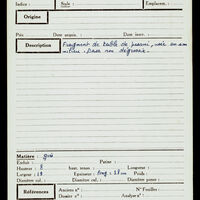 Indice : Style : Emplacem. :
Origine
Prix : Date acquis. : Date inscr. :
Description Fragment de table de jasani, usé en son
milieu, base non dégrossie.
Matière grès
Enduit : Patine :
Hauteur : 8 haut. tenon : Longueur :
Largeur : 19 Epaisseur : Long. : 28 cm Poids :
Diamètre : Diamètre col. : Diamètre panse :
Références Anciens nº : Nº Feuilles :
Dossier nº : Analyse nº :